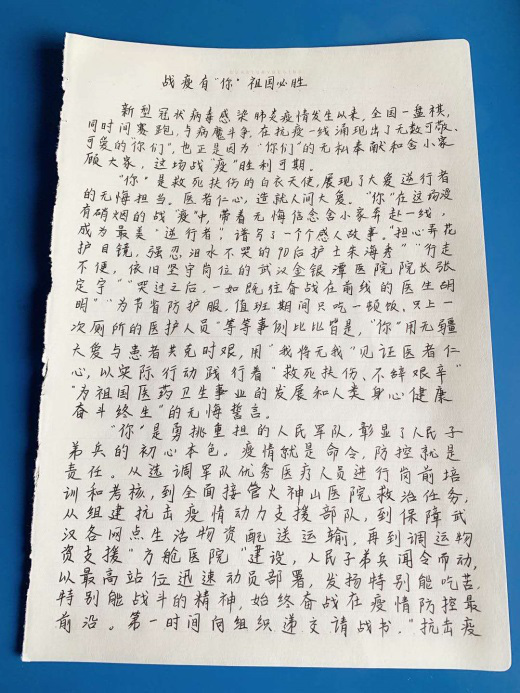 战疫有“你” 祖国必胜
新型冠状病毒感染肺炎疫情发生以来,全国一盘棋,
同时间赛跑,与病魔斗争,在抗疫一线涌现出了无数可敬、
可爱的“你们”,也正是因为“你们”的无私奉献和舍小家
顾大家,这场战“疫”胜利可期。
“你”是救死扶伤的白衣天使,展现了大爱逆行者
的无悔担当。医者仁心,造就人间大爱。“你”在这场没
有硝烟的战“疫”中,带着无悔信念舍小家奔赴一线,
成为最美“逆行者”,谱写了一个个感人故事。“担心弄花
护目镜,强忍泪水不哭的90后护士来海秀”“行走
不便,依旧坚守岗位的武汉金银潭医院院长张
定宇”“哭过之后,一如既往奋战在前线的医生胡
明”“为节省防护服,值班期间只吃一顿饭、只上一
次厕所的医护人员”等等事例比比皆是,“你”用无疆
大爱与患者共克时艰,用“我将无我”见证医者仁
心,以实际行动践行着“救死扶伤、不辞艰辛”
“为祖国医药卫生事业的发展和人类身心健康
奋斗终生”的无悔誓言。
“你”是勇挑重担的人民军队,彰显了人民子
弟兵的初心本色。疫情就是命令,防控就是
责任。从选调军队优秀医疗人员进行岗前培
训和考核,到全面接管火神山医院救治任务,
从组建抗击疫情动力支援部队,到保障武
汉各网点生活物资配送运输,再到调运物
资支援“方舱医院”建设,人民子弟兵闻令而动,
以最高站位迅速动员部署,发扬特别能吃苦、
特别能战斗的精神,始终奋战在疫情防控最
前沿。第一时间向组织递交请战书。“抗击疫